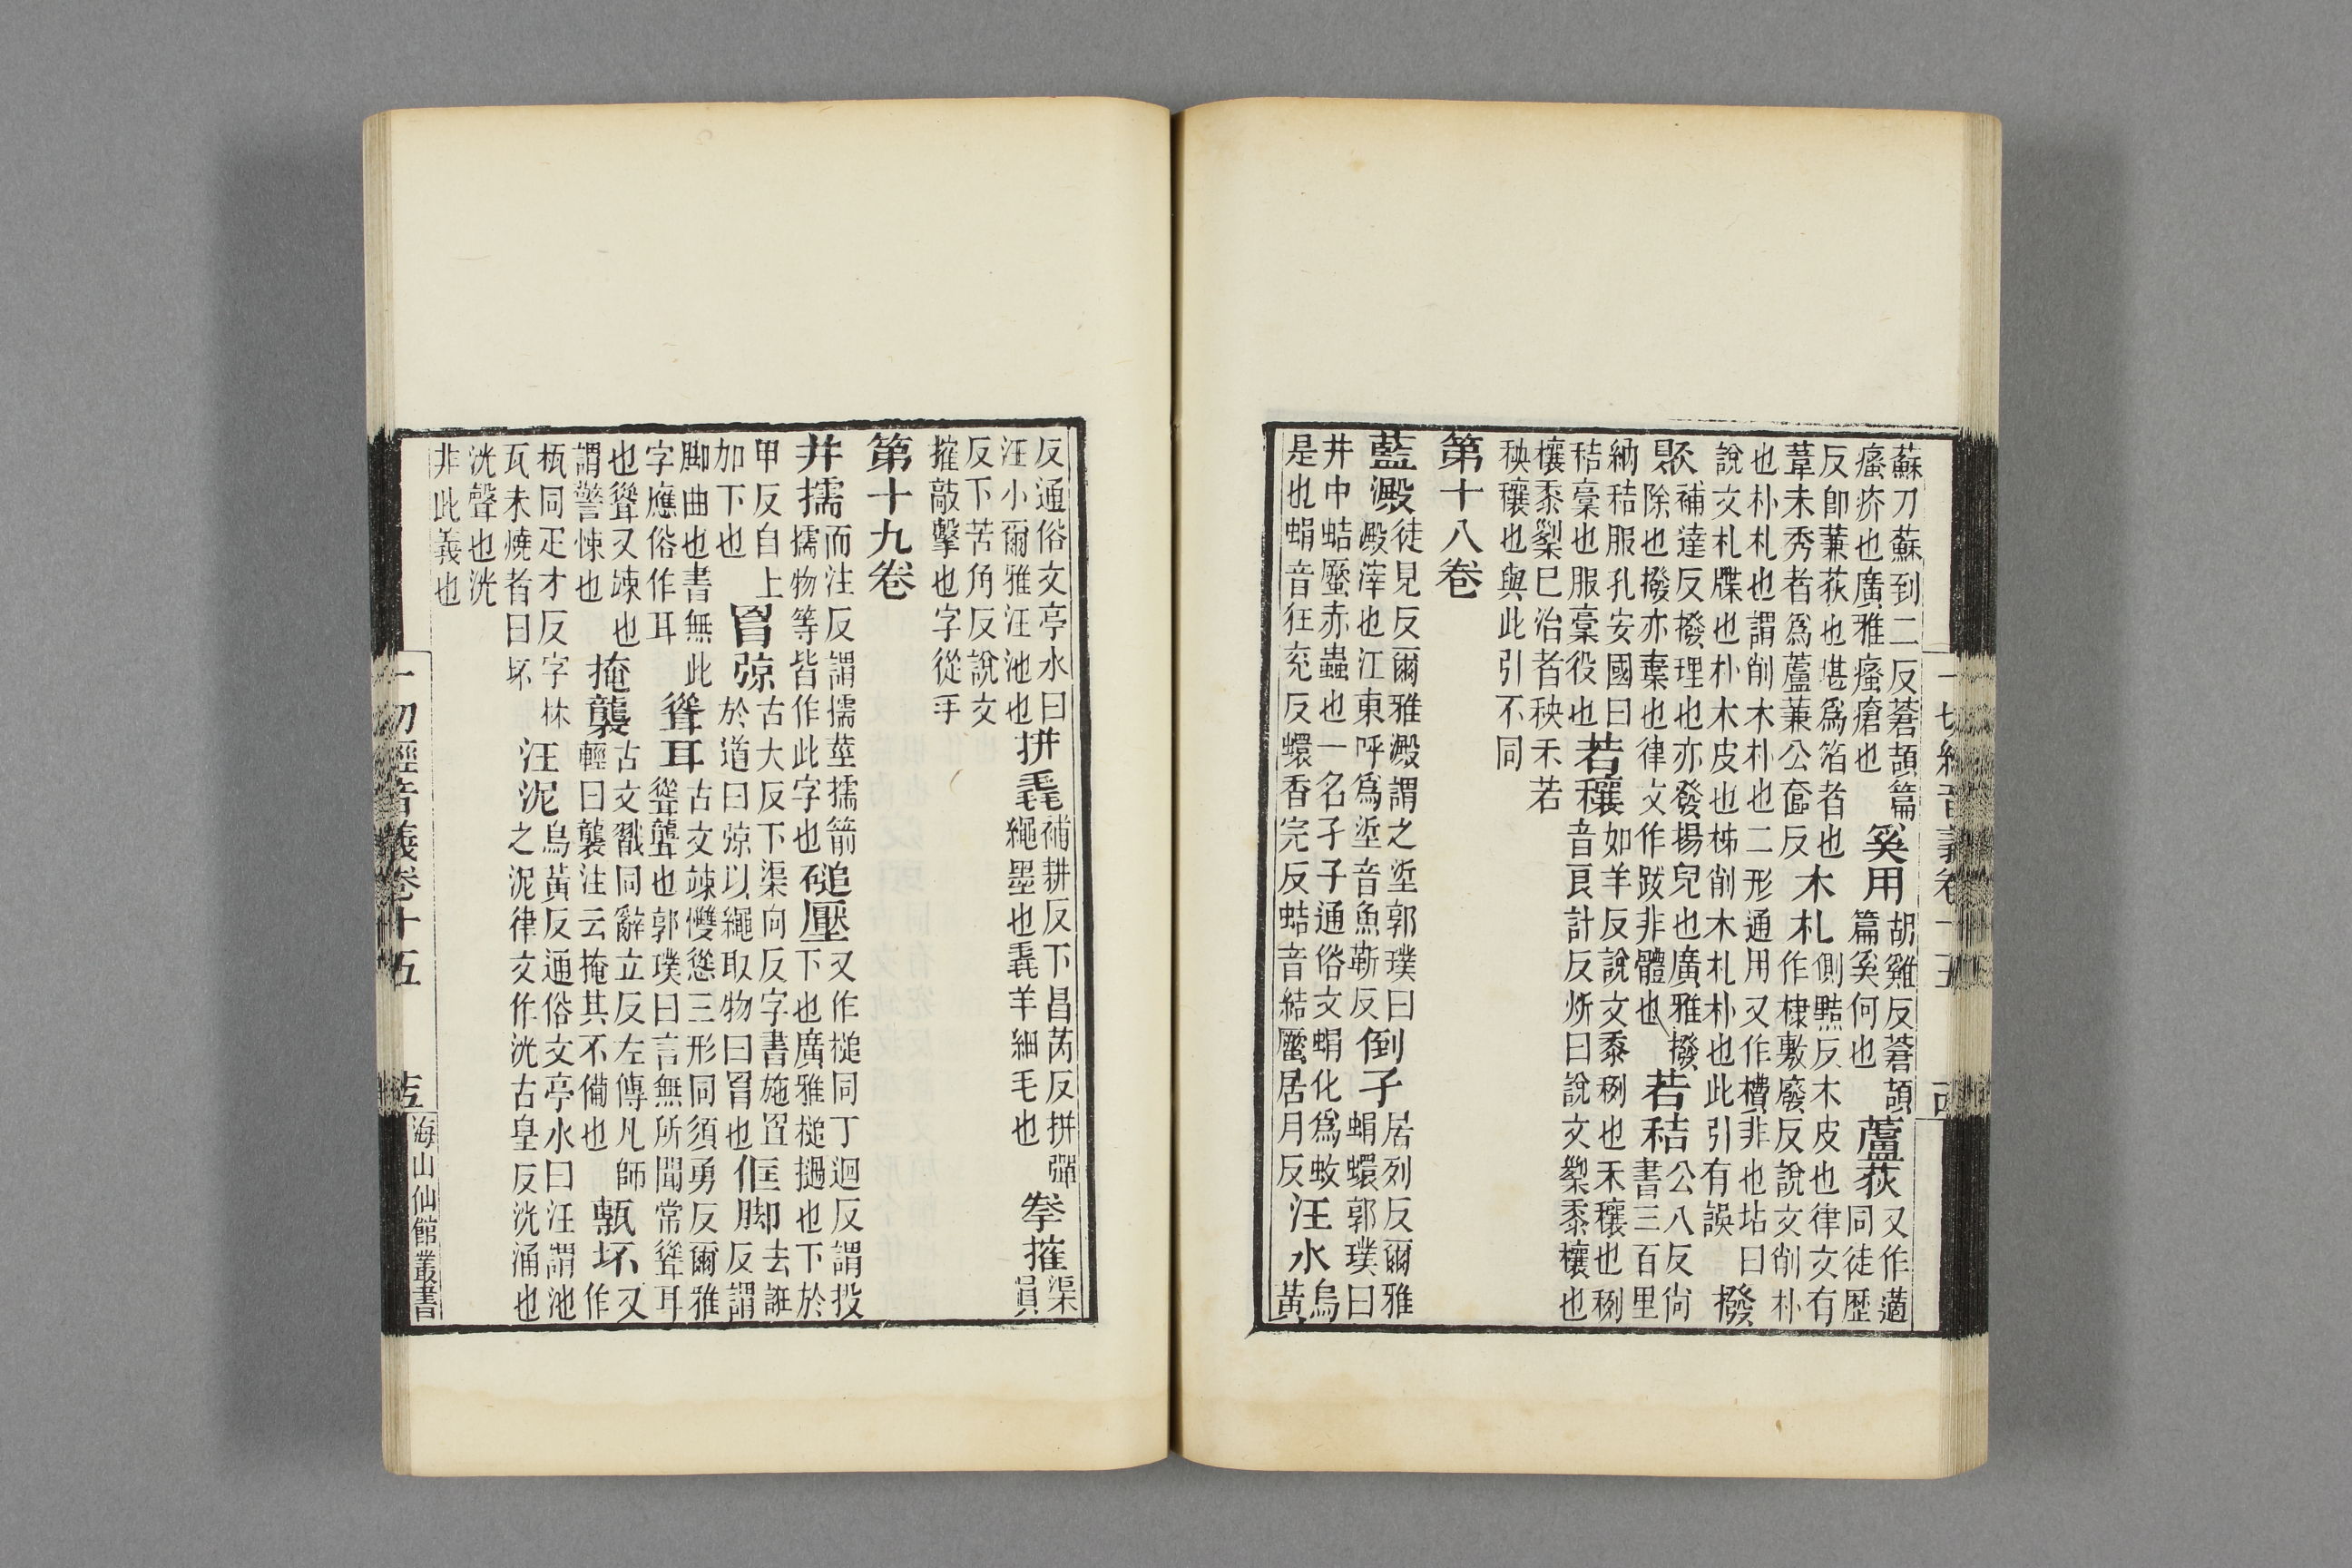 蘇刀蘇到二反蒼頡篇瘙疥也廣雅瘙瘡也奚用胡雞反蒼頡篇奚何也蘆荻又作藡同徒歷
反卽蒹荻也堪爲箔者也葦未秀者爲蘆蒹公奩反木札側黠反木皮也律文有作棣敷廢反說文削朴
也朴札也謂削木朴也二形通用又作櫝非也坫曰說文札牒也朴木皮也柹削木札朴也此引有誤撥
聚補達反撥理也亦發揚皃也廣雅撥除也撥亦棄也律文作跋非體也若秸公八反尚書三百里
納秸服孔安國曰秸稾也服稾役也若穰如羊反說文黍䅀也禾穰也䅀音艮計反炘曰說文黍穰也
穰黍已治者秧禾若秧穰也與此引不同
第十八卷
藍澱徒見反爾雅澱謂之垽郭璞曰澱滓也江東呼爲垽音魚靳反倒孑居列反爾雅蜎蠉郭璞曰
井中蛣蟩赤蟲也一名孑孑通俗文蜎化爲蚊是也蜎音狂兗反蠉香兗反蛣音結蟩居月反汪水烏黃
一切經音義卷十五
十四
反通俗文亭水曰汪小爾雅汪池也拼毳補耕反下昌芮反拼彈繩墨也毳羊細毛也拳搉渠員
反下苦角反說文搉敲擊也字從手
第十九卷
井擩而注反謂擩莖擩箭擩物等皆作此字也磓壓又作槌同丁迴反謂投下也廣雅槌擿也下於
甲反自上加下也罥弶古犬反下渠向反字書施罝於道曰弶以繩取物曰罥也俇脚去誑反謂
脚曲也書無此字應俗作耳聳耳古文竦㩳慫三形同須勇反爾雅聳聾也郭璞曰言無所聞常聳耳
也聳又竦也謂警悚也掩襲古文戳同辭立反左傳凡師輕曰襲注云掩其不備也坏又作
同疋才反字林瓦未燒者曰坏汪泥烏黃反通俗文亭水曰汪謂池之泥律文作洸古皇反洸涌也
洸聲也洸非此義也
一切經音義卷十五
十五
海山仙館叢書